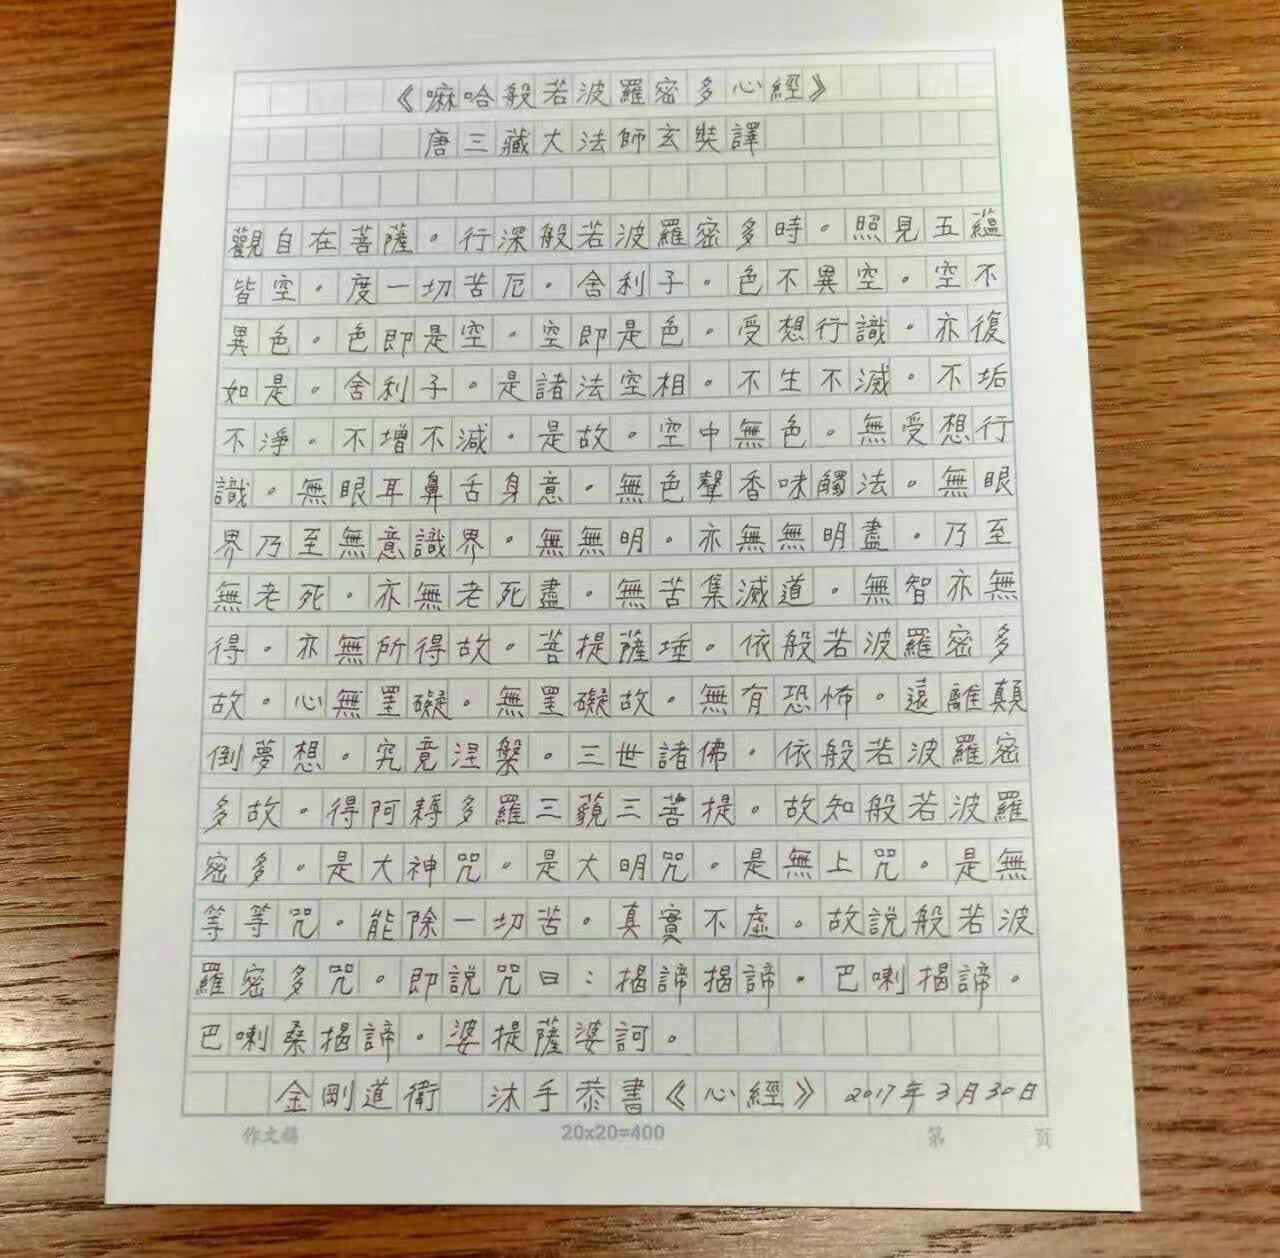 《嘛哈般若波羅密多心經》
唐三藏大法師玄奘譯
觀自在菩薩。行深般若波羅密多時。照見五蘊
皆空。度一切苦厄。舍利子。色不異空。空不
異色。色即是空。空即是色。受想行識。亦復
如是。舍利子。是諸法空相。不生不滅。不垢
不淨。不增不減。是故。空中無色。無受想行
識。無眼耳鼻舌身意。無色聲香味觸法。無眼
界乃至無意識界。無無明。亦無無明盡。乃至
無老死。亦無老死盡。無苦集滅道。無智亦無
得。亦無所得故。菩提薩埵。依般若波羅密多
故。心無罣礙。無罣礙故。無有恐怖。遠離顛
倒夢想。究竟涅槃。三世諸佛。依般若波羅密
多故。得阿耨多羅三藐三菩提。故知般若波羅
密多。是大神咒。是大明咒。是無上咒。是無
等等咒。能除一切苦。真實不虛。故說般若波
羅密多咒。即說咒曰：揭諦揭諦。巴喇揭諦。
巴喇桑揭諦。婆提薩婆訶。
金剛道衛 沐手恭書《心經》 2017年3月30日
作文稿 20x20=400 第 頁